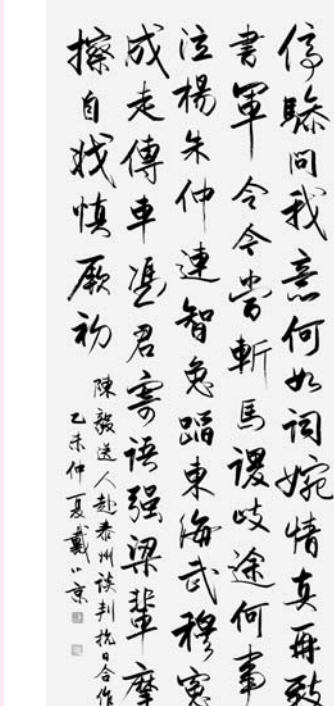 停驂問我意何如詞婉情真再致
書軍令今嘗斬馬謖歧途何事
泣楊朱仲連智免蹈東海武穆寃
成走傳車憑君寄語强梁輩摩
擦自戕慎厥初
陳毅送人赴泰州談判抗日合作
乙未仲夏戴小京